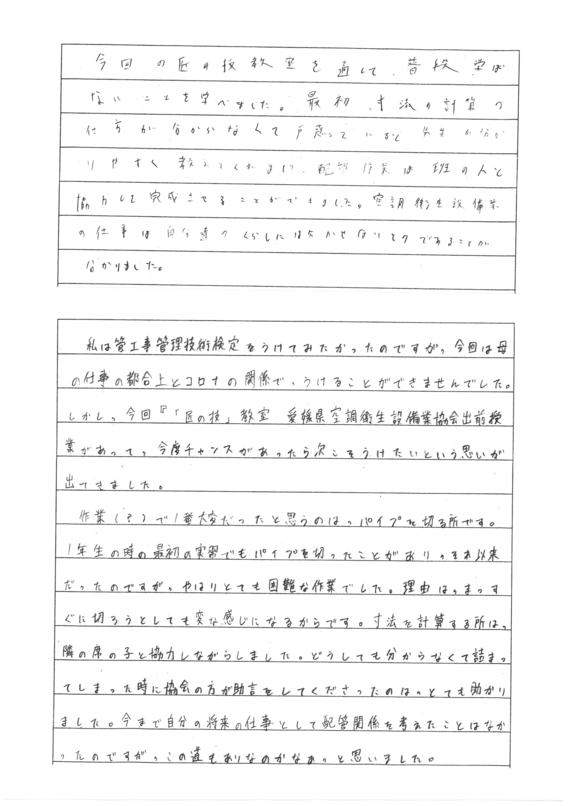 今回の匠の技教室を通して、普段学ば
ないことを学べました。最初、寸法の計算の
仕方が分からなくて戸惑っていると先生が分か
りやすく教えてくれました。配管作業は班の人と
協力して完成させることができました。空調衛生設備業
の仕事は自分達のくらしには欠かせないものであることが
分かりました。
私は管工事管理技術検定をうけてみたかったのですが、今回は母
の仕事の都合上とコロナの関係で、うけることができませんでした。
しかし、今回『「匠の技」教室 愛媛県空調衛生設備業協会出前授
業があって、今度チャンスがあったら次こそうけたいという思いが
出てきました。
作業(?)で1番大変だったと思うのは、パイプを切る所です。
1年生の時の最初の実習でもパイプを切ったことがあり、それ以来
だったのですが、やはりとても困難な作業でした。理由は、まっす
ぐに切ろうとしても変な感じになるからです。寸法を計算する所は、
隣の席の子と協力しながらしました。どうしても分からなくて詰まっ
てしまった時に協会の方が助言をしてくださったのは、とても助かり
ました。今まで自分の将来の仕事として配管関係を考えたことはなか
ったのですが、この道もありなのかなぁっと思いました。